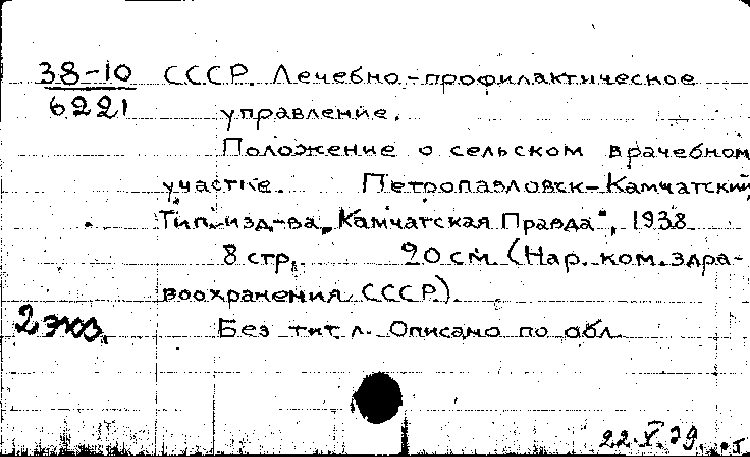 38-10 СССР. Лечебно-профилактическое
6221 управление.
Положение о сельском врачебном
участке. Петропавловск-Камчатский,
Тип. изд-ва „Камчатская Правда“, 1938
8 стр. 20 см. (Нар. ком. здра-
воохранения СССР).
2 экз. Без тит. л. Описано по обл.
22.X.79.